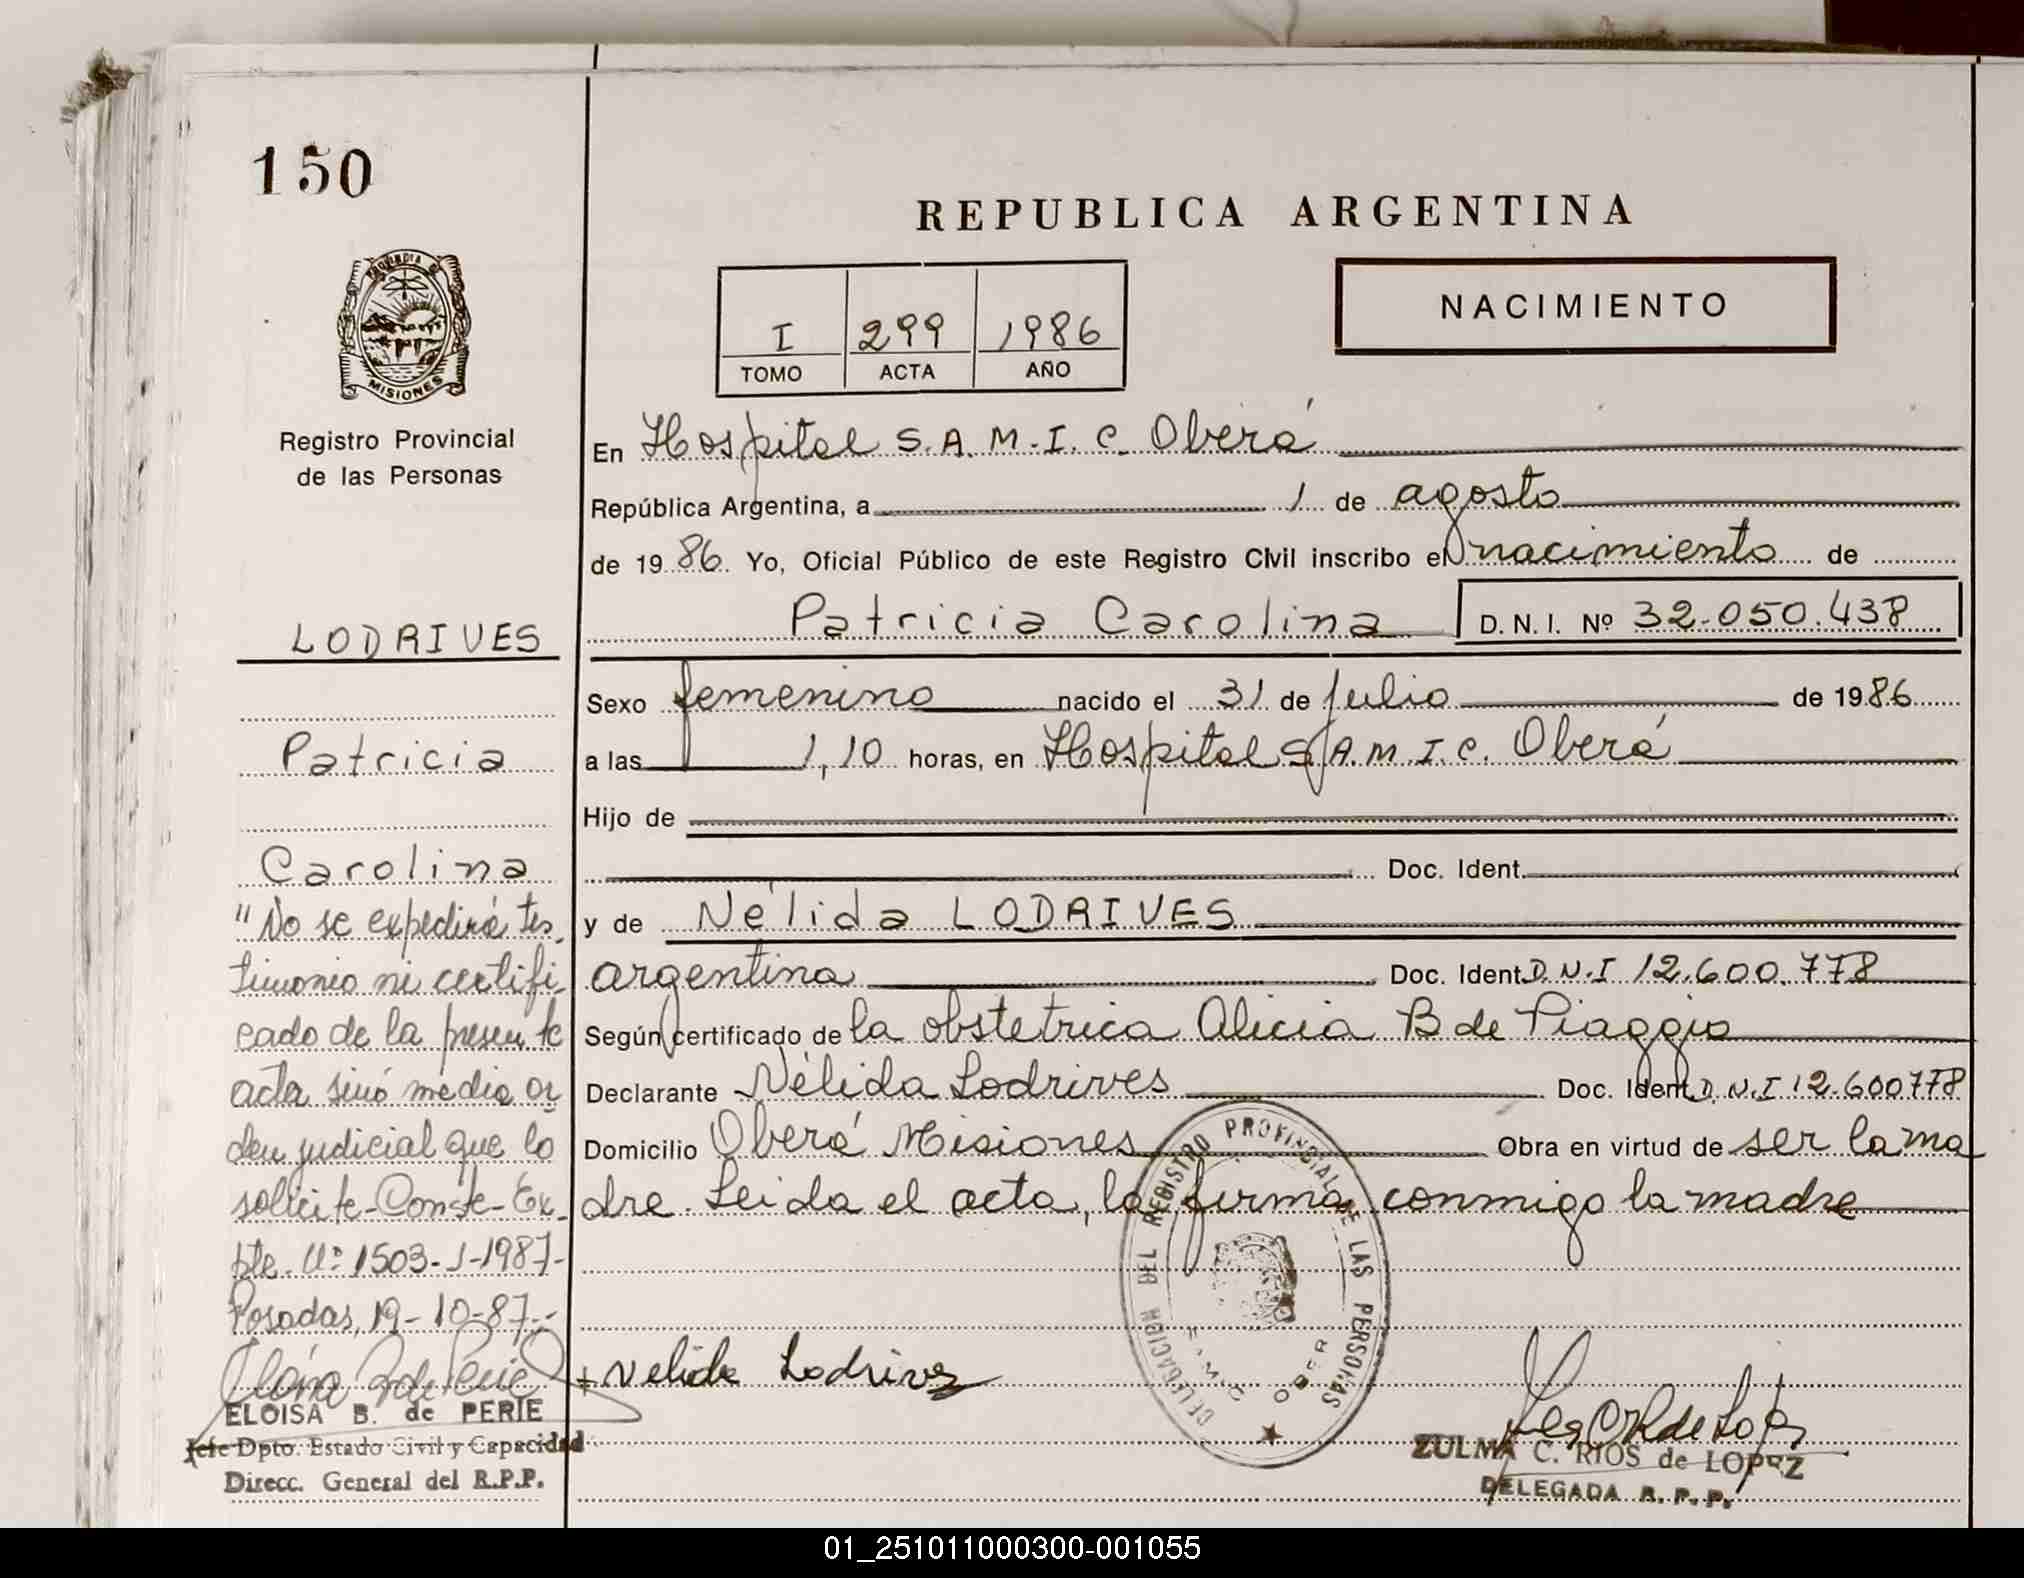 150
REPUBLICA ARGENTINA
PROVINCIA DE
MISIONES
I 299 1986
TOMO ACTA AÑO
NACIMIENTO
Registro Provincial
de las Personas
En Hospital S.A.M.I.C. Oberá
República Argentina, a 1 de agosto
de 1986. Yo, Oficial Público de este Registro Civil inscribo el nacimiento de
Patricia Carolina D.N.I. Nº 32.050.438
LODRIVES
Sexo femenino nacido el 31 de julio de 1986
Patricia
a las 1,10 horas, en Hospital S.A.M.I.C. Oberá
Hijo de
Carolina
Doc. Ident.
y de Nélida LODRIVES
argentina Doc. Ident. D.N.I 12.600.778
Según certificado de la obstetrica Alicia B de Piaggio
Declarante Nélida Lodrives Doc. Ident. D.N.I 12.600778
Domicilio Oberá Misiones Obra en virtud de ser la ma
dre. Leida el acta, la firma conmigo la madre
"No se expedirá tes-
timonio ni certifi-
cado de la presente
acta sinó media or
den judicial que lo
solicite-Conste-Ex-
pte. Nº 1503-J-1987-
Posadas, 19-10-87.-
ELOISA B. de PERIE
Jefe Dpto. Estado Civil y Capacidad
Direcc. General del R.P.P.
Nelida Lodrives
DELEGACION DEL REGISTRO PROVINCIAL DE LAS PERSONAS
ZULMA C. RIOS de LOPEZ
DELEGADA R.P.P.
01_251011000300-001055